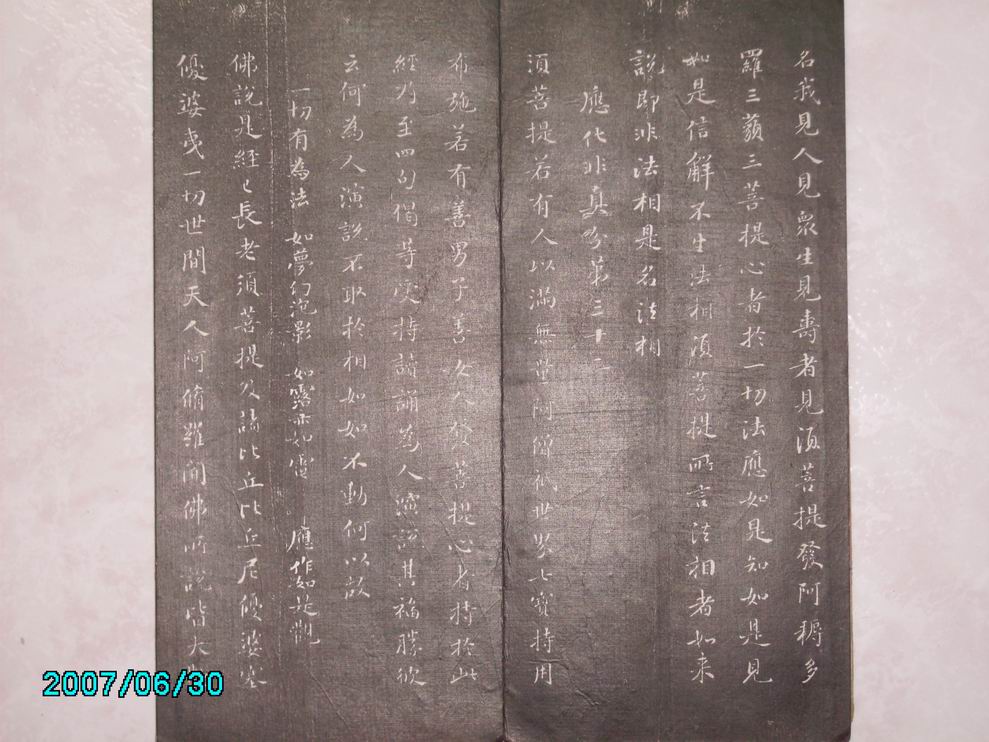 名我見人見眾生見壽者見須菩提發阿耨多
羅三藐三菩提心者於一切法應如是知如是見
如是信解不生法相須菩提所言法相者如来
說即非法相是名法相
應化非真分第三十二
須菩提若有人以滿無量阿僧祇世界七寶持用
布施若有善男子善女人發菩提心者持於此
經乃至四句偈等受持讀誦為人演說其福勝彼
云何為人演說不取於相如如不動何以故
一切有為法 如夢幻泡影 如露亦如電 應作如是觀
佛說是經已長老須菩提及諸比丘比丘尼優婆塞
優婆夷一切世間天人阿脩羅聞佛所說皆大
2007/06/30